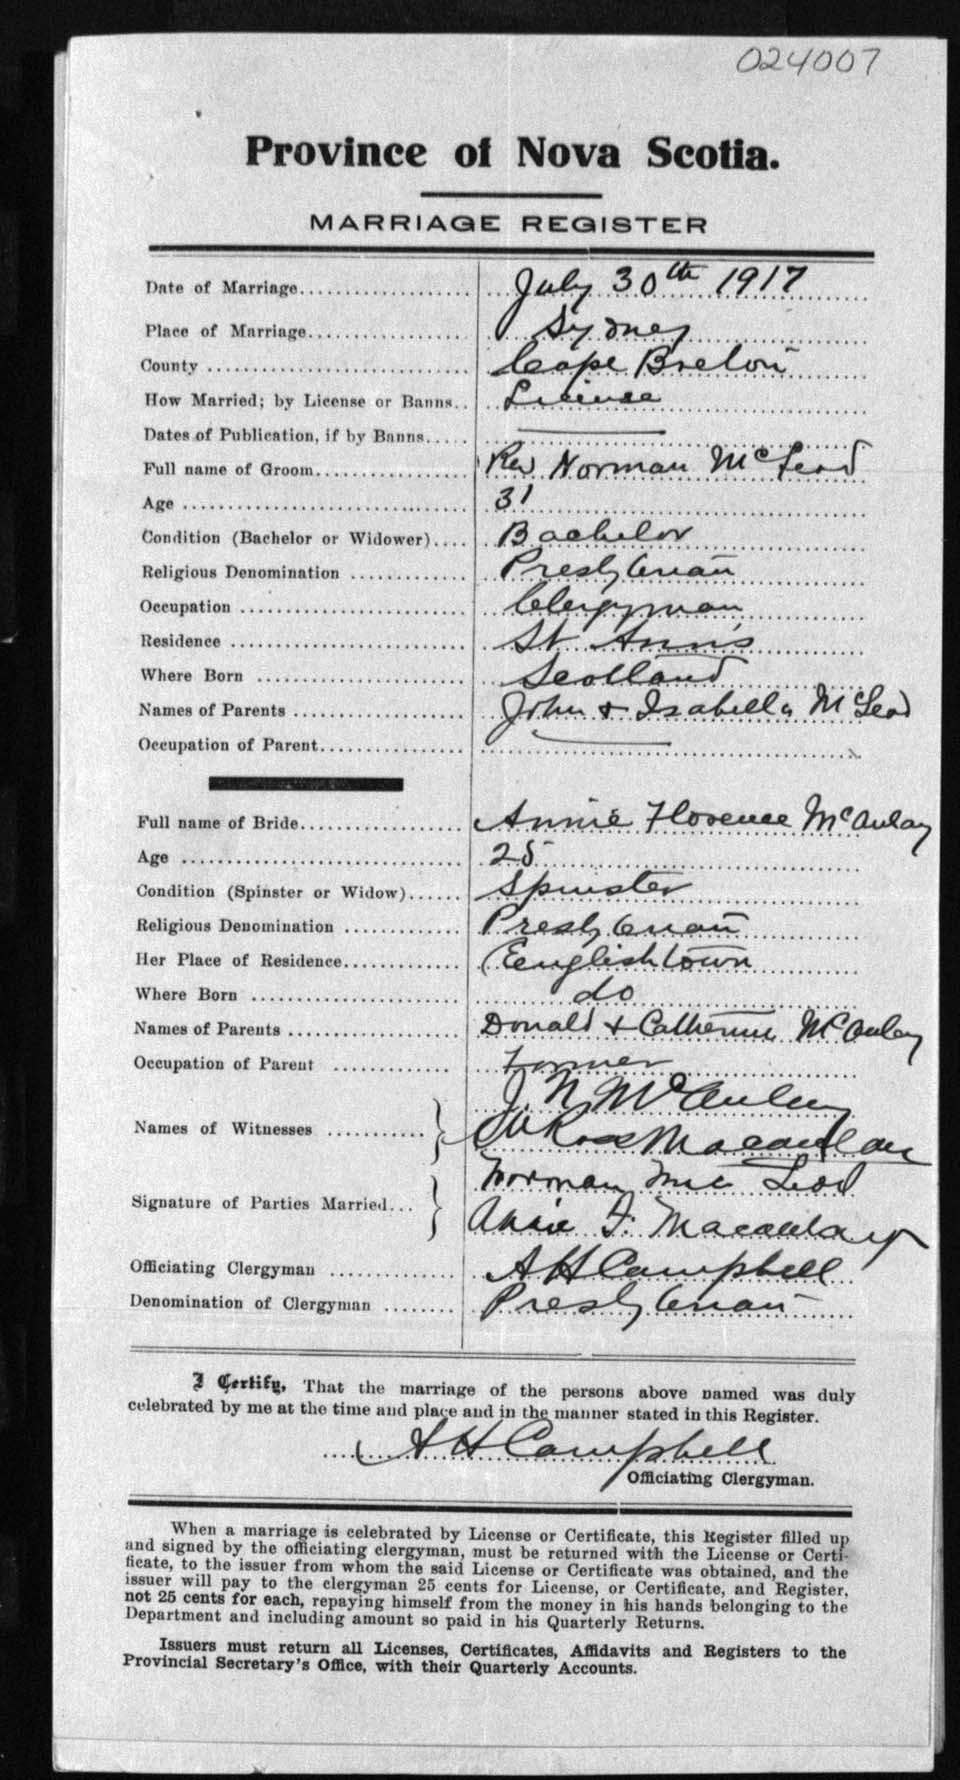 024007
Province of Nova Scotia.
MARRIAGE REGISTER
Date of Marriage.................... July 30th 1917
Place of Marriage................... Sydney
County .............................. Cape Breton
How Married; by License or Banns.. License
Dates of Publication, if by Banns.....
Full name of Groom.................. Rev Norman McLeod
Age ................................. 31
Condition (Bachelor or Widower).... Bachelor
Religious Denomination ............. Presbyterian
Occupation .......................... Clergyman
Residence ........................... St Ann's
Where Born ........................ Scotland
Names of Parents ................... John & Isabella McLeod
Occupation of Parent.................
Full name of Bride................... Annie Florence McAulay
Age ................................ 25
Condition (Spinster or Widow)...... Spinster
Religious Denomination ............. Presbyterian
Her Place of Residence.............. Englishtown
Where Born ........................ do
Names of Parents .................... Donald & Catherine McAulay
Occupation of Parent ............... Farmer
J. N. McAulay
Names of Witnesses ........... Ross Macaulay
Norman McLeod
Signature of Parties Married...
Annie F. Macaulay
Officiating Clergyman ............... A H Campbell
Denomination of Clergyman ........ Presbyterian
I Certify, That the marriage of the persons above named was duly
celebrated by me at the time and place and in the manner stated in this Register.
A H Campbell
Officiating Clergyman.
When a marriage is celebrated by License or Certificate, this Register filled up
and signed by the officiating clergyman, must be returned with the License or Certi-
ficate, to the issuer from whom the said License or Certificate was obtained, and the
issuer will pay to the clergyman 25 cents for License, or Certificate, and Register,
not 25 cents for each, repaying himself from the money in his hands belonging to the
Department and including amount so paid in his Quarterly Returns.
Issuers must return all Licenses, Certificates, Affidavits and Registers to the
Provincial Secretary's Office, with their Quarterly Accounts.